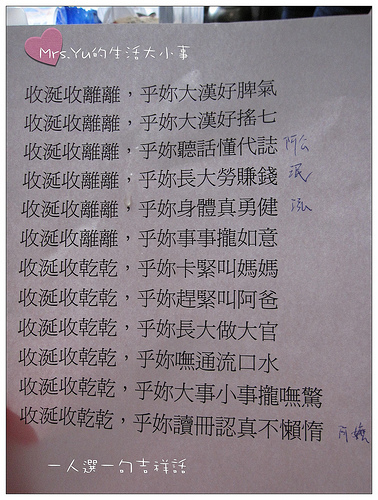 Mrs.Yu的生活大小事
收涎收離離，乎妳大漢好脾氣
收涎收離離，乎妳大漢好搖七
收涎收離離，乎妳聽話懂代誌 阿公
收涎收離離，乎妳長大勞賺錢
收涎收離離，乎妳身體真勇健
收涎收離離，乎妳事事攏如意
收涎收乾乾，乎妳卡緊叫媽媽
收涎收乾乾，乎妳趕緊叫阿爸
收涎收乾乾，乎妳長大做大官
收涎收乾乾，乎妳嘸通流口水
收涎收乾乾，乎妳大事小事攏嘸驚
收涎收乾乾，乎妳讀冊認真不懶惰
一人選一句吉祥話